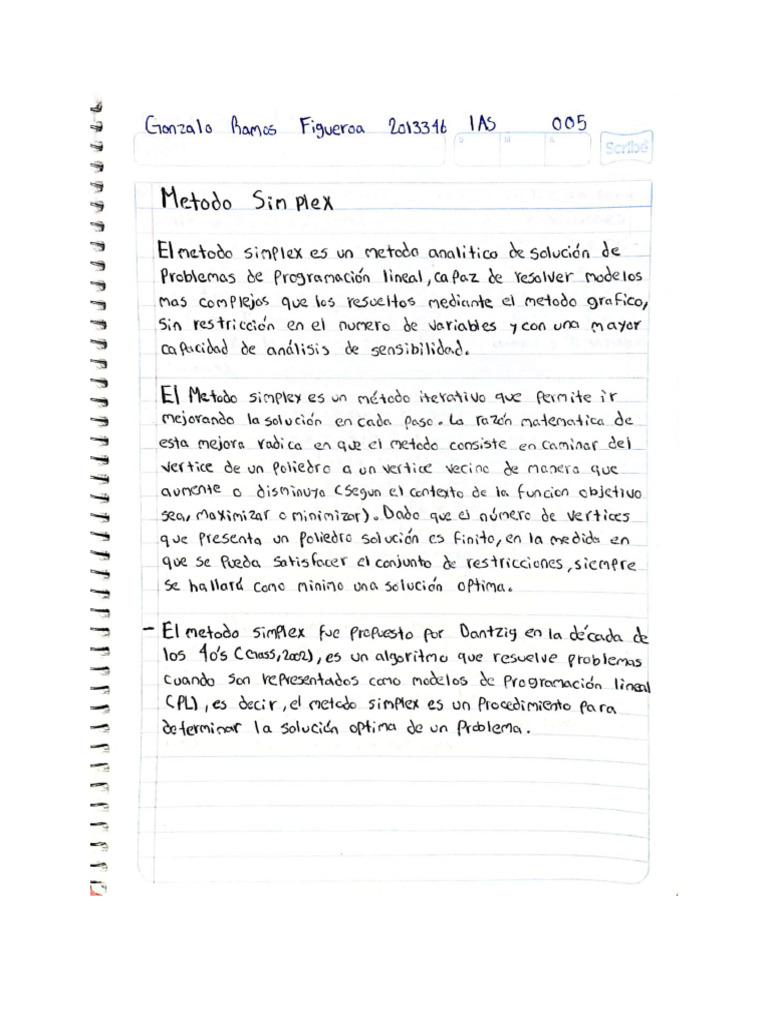 Gonzalo Ramos Figueroa 2013346 IAS 005
D M A Scribe
Metodo Simplex
El metodo simplex es un metodo analitico de solución de
Problemas de Programación lineal, capaz de resolver modelos
mas complejos que los resueltos mediante el metodo grafico,
Sin restricción en el numero de variables y con una mayor
capacidad de análisis de sensibilidad.
El Metodo simplex es un método iterativo que permite ir
mejorando la solución en cada paso. La razón matematica de
esta mejora radica en que el metodo consiste en caminar del
vertice de un poliedro a un vertice vecino de manera que
aumente o disminuya (segun el contexto de la funcion objetivo
sea, maximizar o minimizar). Dado que el número de vertices
que presenta un poliedro solución es finito, en la medida en
que se pueda satisfacer el conjunto de restricciones, siempre
se hallará como minimo una solución optima.
- El metodo simplex fue propuesto por Dantzig en la década de
los 40's (Class, 2002), es un algoritmo que resuelve problemas
cuando son representados como modelos de Programación lineal
(PL), es decir, el metodo simplex es un Procedimiento para
determinar la solución optima de un Problema.